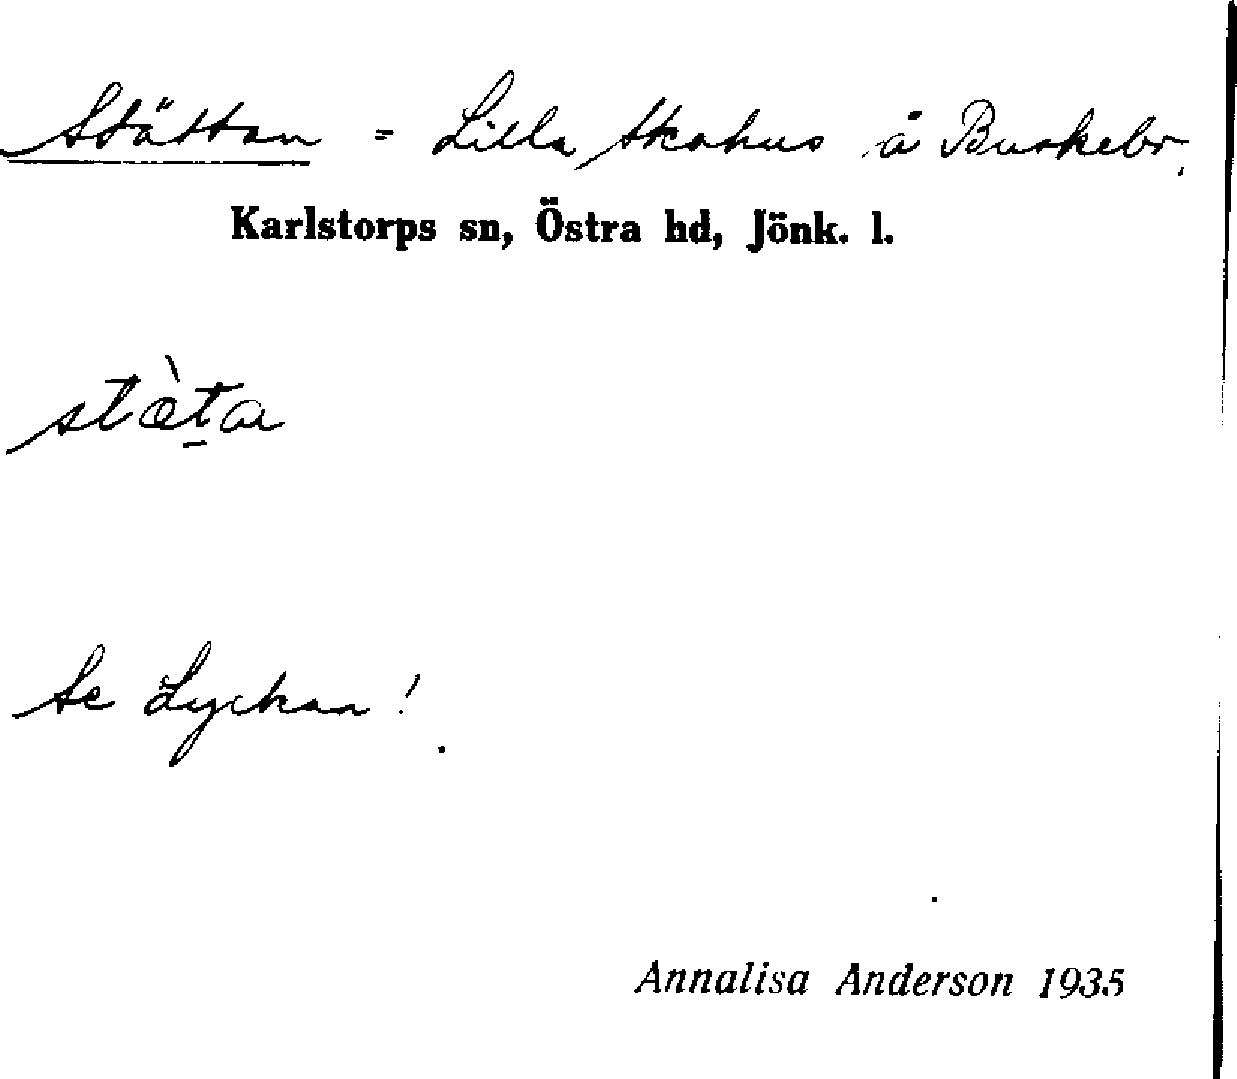 Stättan = Lilla Skahus å Buskebr.
Karlstorps sn, Östra hd, Jönk. l.
stæ̀ta
Se Lyckan!
Annalisa Anderson 1935